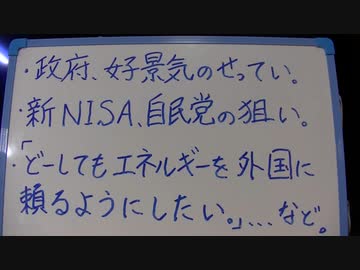 ・政府、好景気のせってい。
・新NISA、自民党の狙い。
・「どーしてもエネルギーを外国に
頼るようにしたい。」...など。